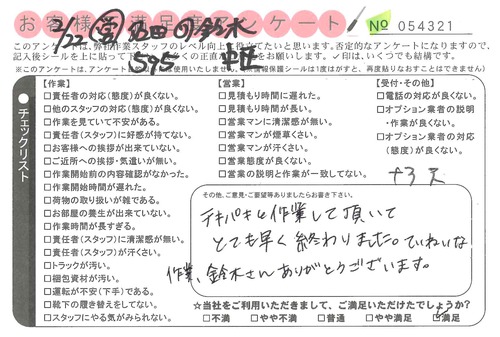 お客様満足度アンケート
No 054321
2/22 富 鈴木
595
このアンケートは、弊社作業スタッフのレベル向上に役立てたいと思います。否定的なアンケートになりますので、
記入後シールを上に貼って下さい。多くの正直な意見をお願いします。✓印は、いくつでも結構です。
チェックリスト
【作業】
□責任者の対応(態度)が良くない。
□他のスタッフの対応(態度)が良くない。
□作業を見ていて不安がある。
□責任者(スタッフ)に好感が持てない。
□お客様への挨拶が出来ていない。
□ご近所への挨拶・気遣いが無い。
□作業開始前の内容確認がなかった。
□作業開始時間が遅れた。
□荷物の取り扱いが雑である。
□お部屋の養生が出来ていない。
□作業時間が長すぎる。
□責任者(スタッフ)に清潔感が無い。
□責任者(スタッフ)が汗くさい。
□トラックが汚い。
□梱包資材が汚い。
□運転が不安(下手)である。
□靴下の履き替えをしてない。
□スタッフにやる気がみられない。
【営業】
□見積もり時間に遅れた。
□見積もり時間が長い。
□営業マンに清潔感が無い。
□営業マンが煙草くさい。
□営業マンが汗くさい。
□営業態度が良くない。
□営業の説明と作業が一致してない。
【受付・その他】
□電話の対応が良くない。
□オプション業者の説明
・作業が良くない。
□オプション業者の対応
(態度)が良くない。
その他、ご意見・ご要望等ありましたらお書き下さい。
テキパキと作業して頂いて
とても早く終わりました。ていねいな
作業、鈴木さんありがとうございます。
☆当社をご利用いただきまして、ご満足いただけたでしょうか?
□不満 □やや不満 □普通 □やや満足 ☑満足